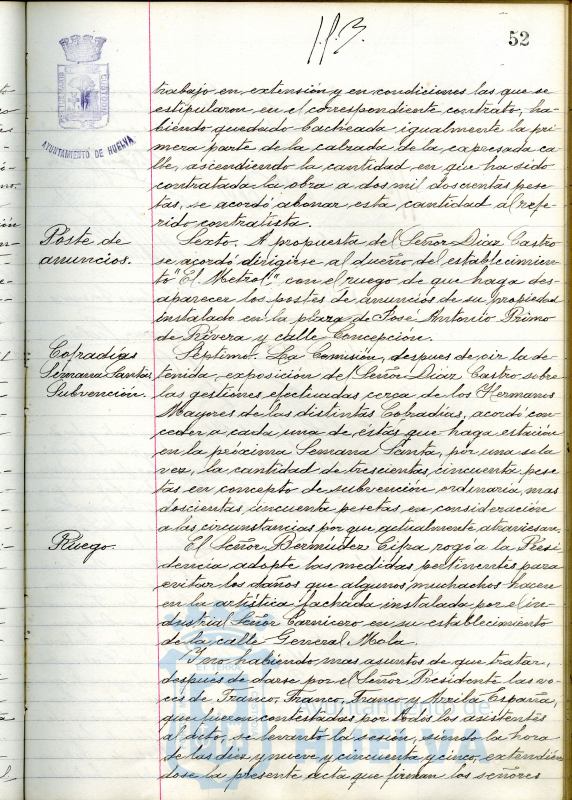 113.
52
AYUNTAMIENTO DE HUELVA
trabajo en extensión y en condiciones las que se
estipularon en el correspondiente contrato, ha-
biendo quedado bacheada igualmente la pri-
mera parte de la calzada de la expresada ca-
lle, ascendiendo la cantidad en que ha sido
contratada la obra a dos mil doscuentas pese-
tas, se acordó abonar esta cantidad al refe-
rido contratista.
Poste de
anuncios.
Sexto. A propuesta del Señor Díaz Castro
se acordó dirigirse al dueño del establecimien-
to "El Metrol" con el ruego de que haga des-
aparecer los postes de anuncios de su propiedad
instalado en la plaza de José Antonio Primo
de Rivera y calle Concepción.
Cofradías
Semana Santa,
Subvención.
Séptimo. La Comisión, despues de oir la de-
tenida exposición del Señor Díaz Castro sobre
las gestiones efectuadas cerca de los Hermanos
Mayores de las distintas Cofradías, acordó con-
ceder a cada una de éstas que haga estación
en la próxima Semana Santa, por una sola
vez, la cantidad de trescientas cincuenta pese-
tas en concepto de subvención ordinaria, mas
doscientas cincuenta pesetas en consideración
a las circunstancias por que actualmente atraviesan.
Ruego.
El Señor Bermúdez Cifra rogó a la Presi-
dencia adopte las medidas pertinentes para
evitar los daños que algunos muchachos hacen
en la artística fachada instalada por el in-
dustrial Señor Carnicero en su establecimiento
de la calle General Mola.
Y no habiendo mas asuntos de que tratar,
despues de darse por el Señor Presidente las vo-
ces de Franco, Franco, Franco y Arriba España,
que fueron contestadas por todos los asistentes
al acto, se levantó la sesión, siendo la hora
de las diez y nueve y cincuenta y cinco, extendién-
dose la presente acta que firman los señores
Ayuntamiento de
HUELVA